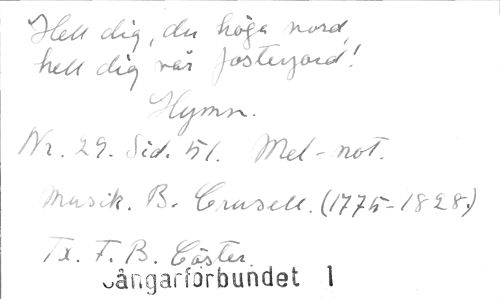 Hell dig, du höga nord,
hell dig vår fosterjord!
Hymn.
Nr. 29. Sid. 51. Mel-not.
Musik. B. Crusell. (1775-1828.)
Tx. F. B. Cöster.
Sångarförbundet 1